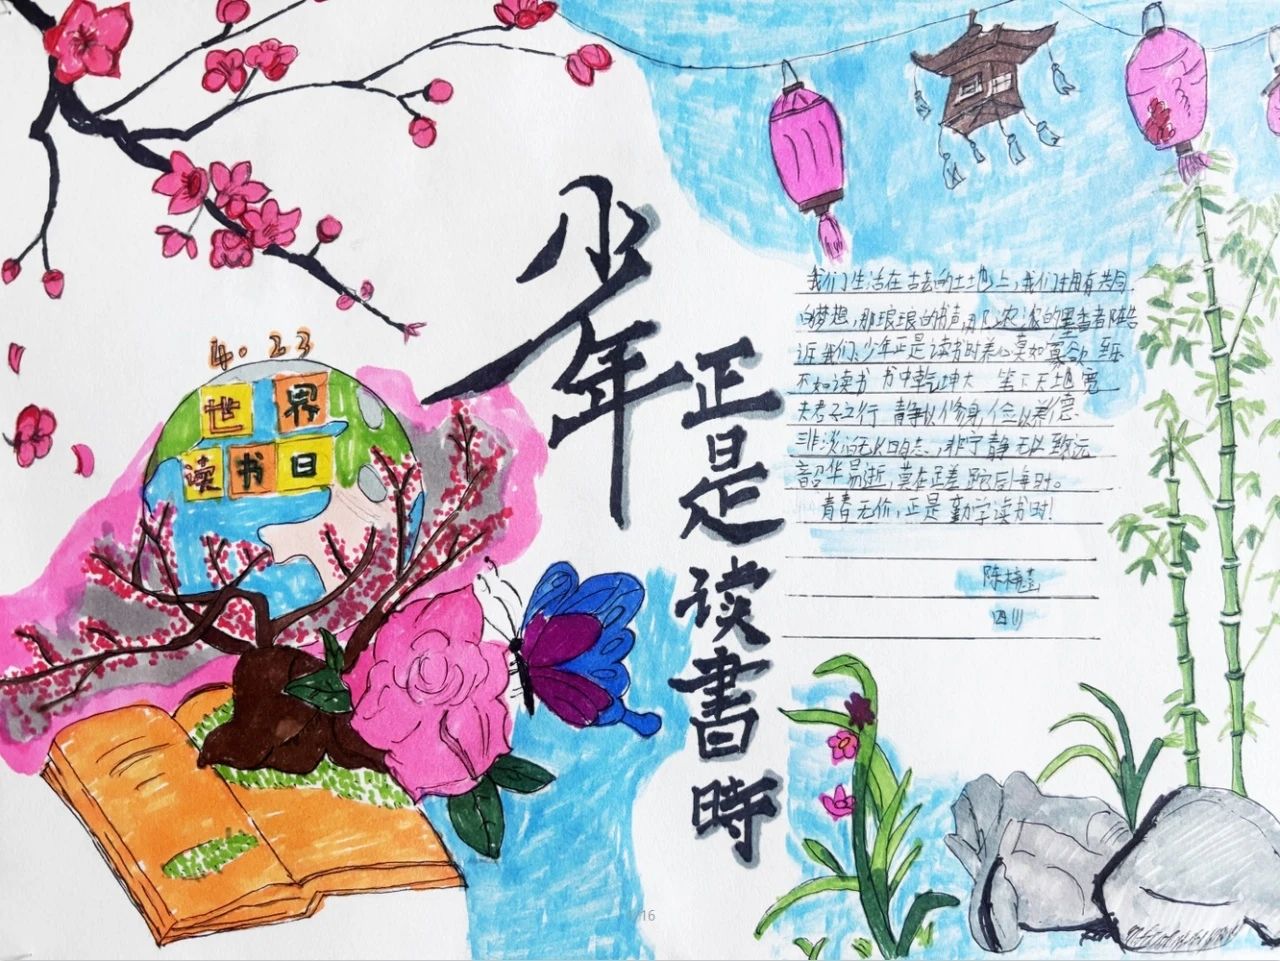 少年
正是读書時
4.23
世界
读书日
我们生活在古老的土地上,我们拥有共同
的梦想,那琅琅的书声,那浓浓的墨香都在告
诉我们,少年正是读书时养心莫如寡欲 至乐
不如读书 书中乾坤大 笔下天地宽
夫君子之行 静以修身,俭以养德
非淡泊无以明志,非宁静无以致远
韶华易逝,莫在蹉跎后悔时。
青春无价,正是勤学读书时!
四川
16